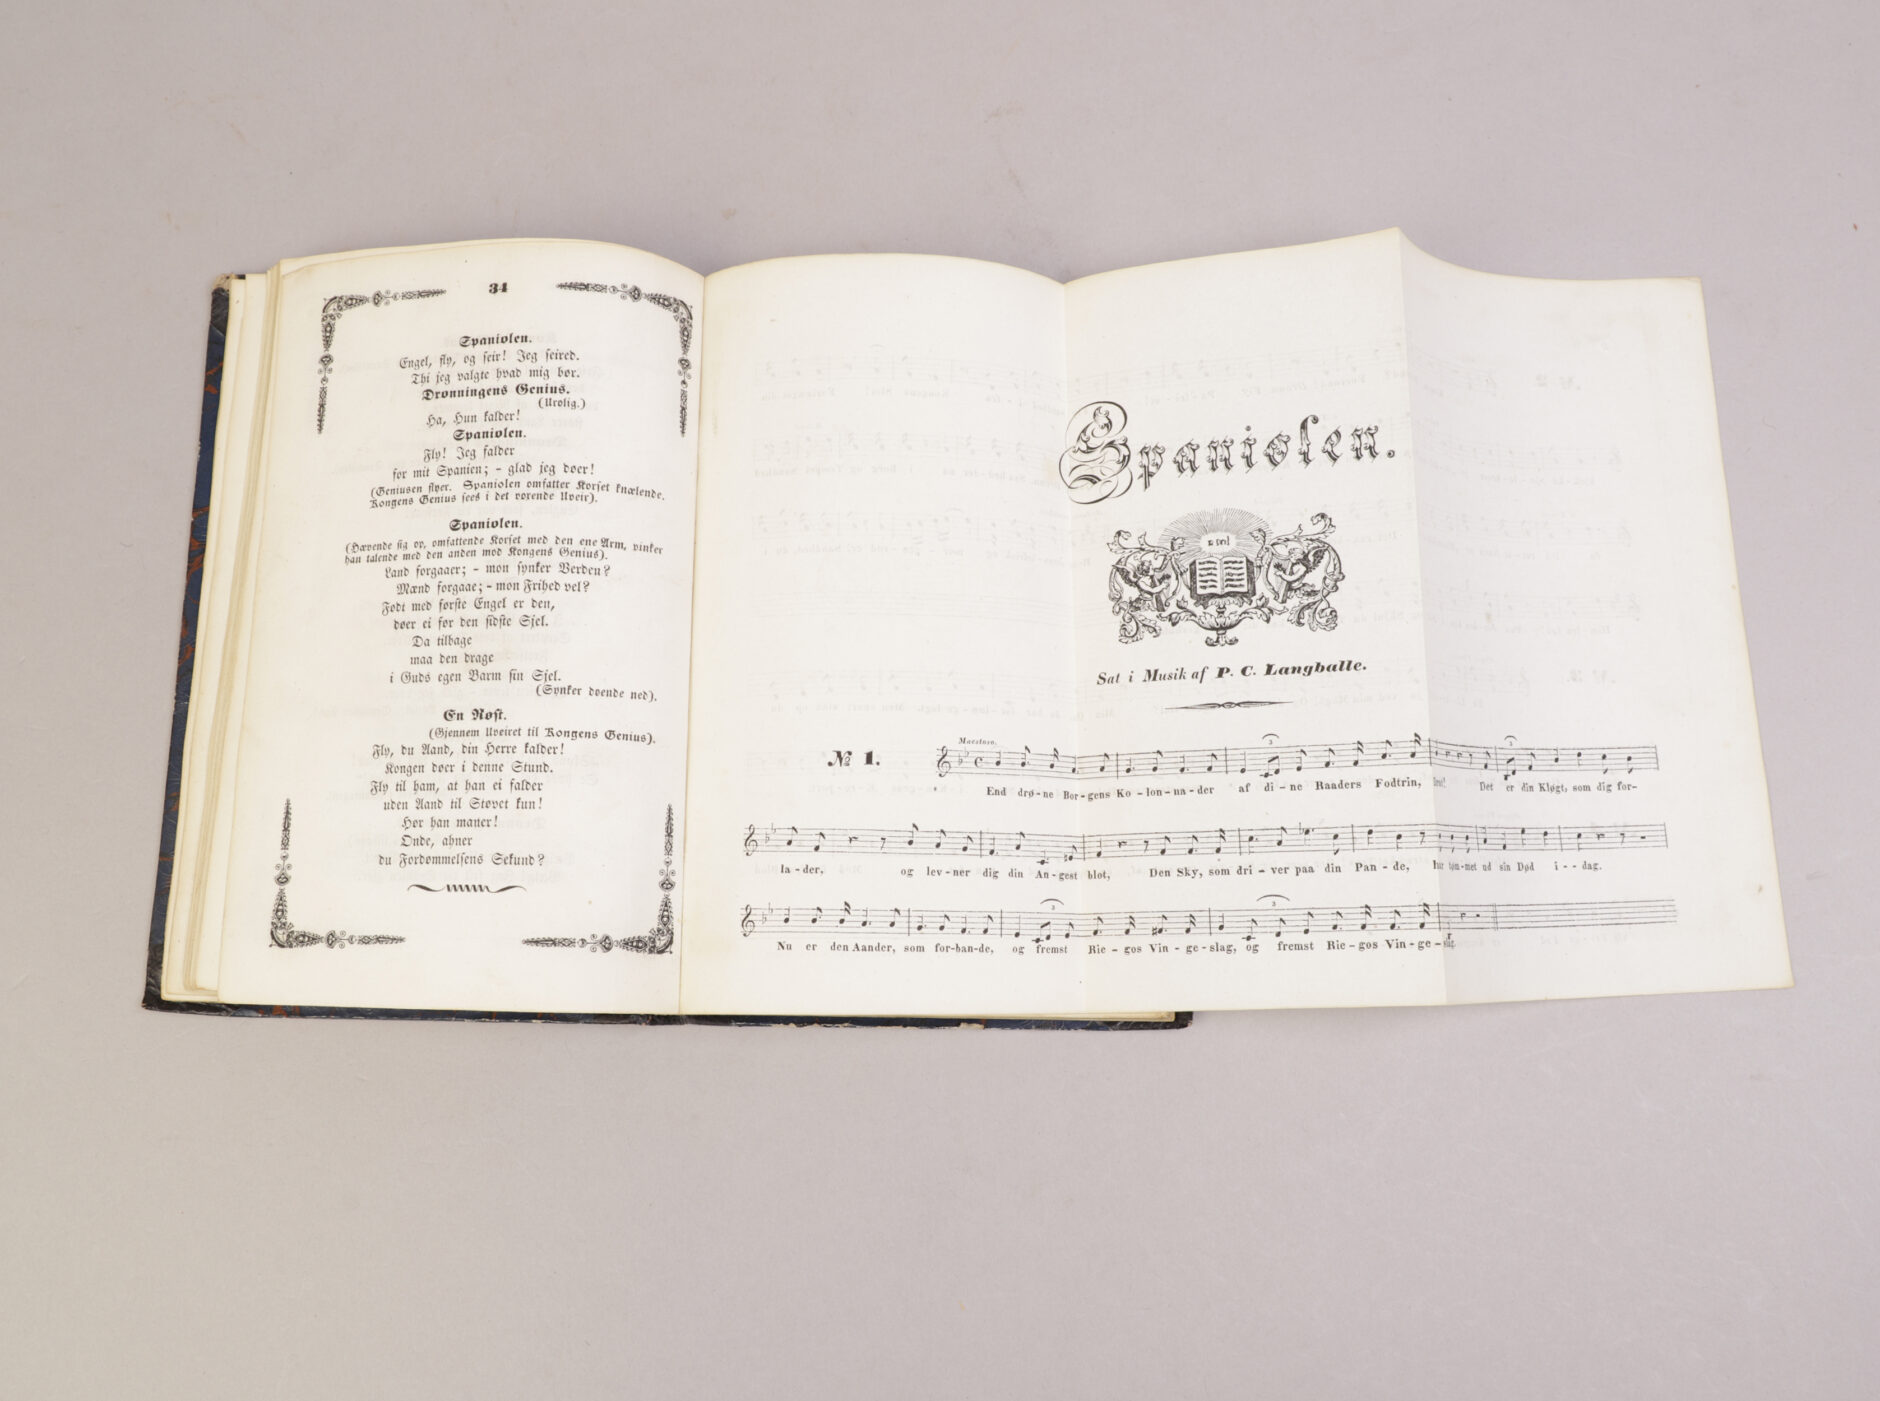 34
Spaniolen.
Engel, fly, og seir! Jeg seired.
Thi jeg valgte hvad mig bør.
Dronningens Genius.
(Urolig.)
Ha, Hun kalder!
Spaniolen.
Fly! Jeg falder
for mit Spanien; - glad jeg døer!
(Geniusen flyer. Spaniolen omfatter Korset knælende.
Kongens Genius sees i det voxende Uveir).
Spaniolen.
(Hævende sig op, omfattende Korset med den ene Arm, vinker
han talende med den anden mod Kongens Genius).
Land forgaaer; - mon synker Verden?
Mænd forgaae; - mon Frihed vel?
Født med første Engel er den,
døer ei før den sidste Sjel.
Da tilbage
maa den drage
i Guds egen Barm sin Sjel.
(Synker døende ned).
En Røst.
(Gjennem Uveiret til Kongens Genius).
Fly, du Aand, din Herre kalder!
Kongen døer i denne Stund.
Fly til ham, at han ei falder
uden Aand til Støvet kun!
Hør han maner!
Onde, ahner
du Fordømmelsens Sekund?
Spaniolen.
Sat i Musik af P. C. Langballe.
№ 1.
Maestoso.
End drø-ne Bor-gens Ko-lon-na-der af di-ne Raaders Fodtrin, Det er din Kløgt, som dig for-
la-der, og lev-ner dig din An-gest blot, Den Sky, som dri-ver paa din Pan-de, har tøm-met ud sin Død i--dag.
Nu er den Aander, som for-ban-de, og fremst Rie-gos Vin-ge-slag, og fremst Rie-gos Vin-ge-slag.